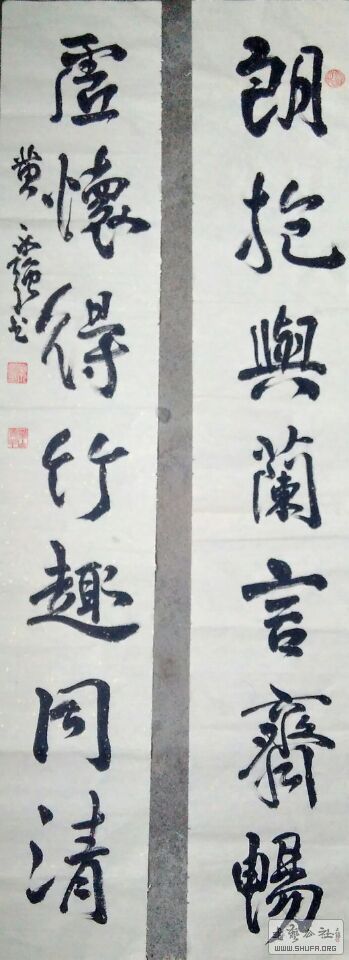 朗抱與蘭言齊暢
虛懷得竹趣同清
黄
书
WWW.SHUFA.ORG